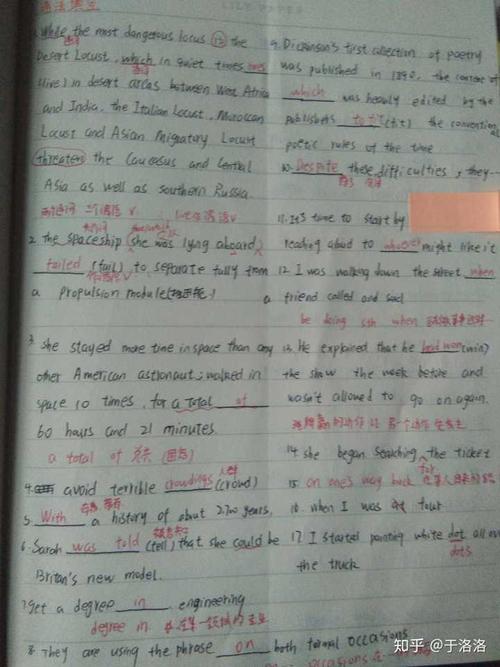 语法填空
LILY PAPER
1. While the most dangerous locus is the
Desert Locust, which in quiet times lives
(live) in desert areas between West Africa
and India, the Italian Locust, Moroccan
Locust and Asian Migratory Locust
threatens the Caucasus and Central
Asia as well as southern Russia.
2. the spaceship (she was lying aboard)
failed (fail) to separate fully from
a propulsion module
3. she stayed more time in space than any
other American astronaut; walked in
space 10 times, for a total of
60 hours and 21 minutes.
a total of
4. avoid terrible crowdings (crowd)
5. With a history of about 2,700 years,
6. Sarah was told (tell) that she could be
Britain's new model.
7. get a degree in engineering
degree in
8. They are using the phrase on both formal occasions
9. Dickinson's first collection of poetry
was published in 1890, the content of
which was heavily edited by the
publishers to fit (fit) the conventional
poetic rules of the time
10. Despite these difficulties, they—
11. It's time to start by
reading aloud to whoever might like it
12. I was walking down the street when
a friend called and said
be doing sth when
13. He explained that he had won (win)
the show the week before and
wasn't allowed to go on again.
14. she began searching the ticket
for
15. on one's way back
16. when I was at four
17. I started painting white dot all over
dots
the truck
知乎 @于洛洛